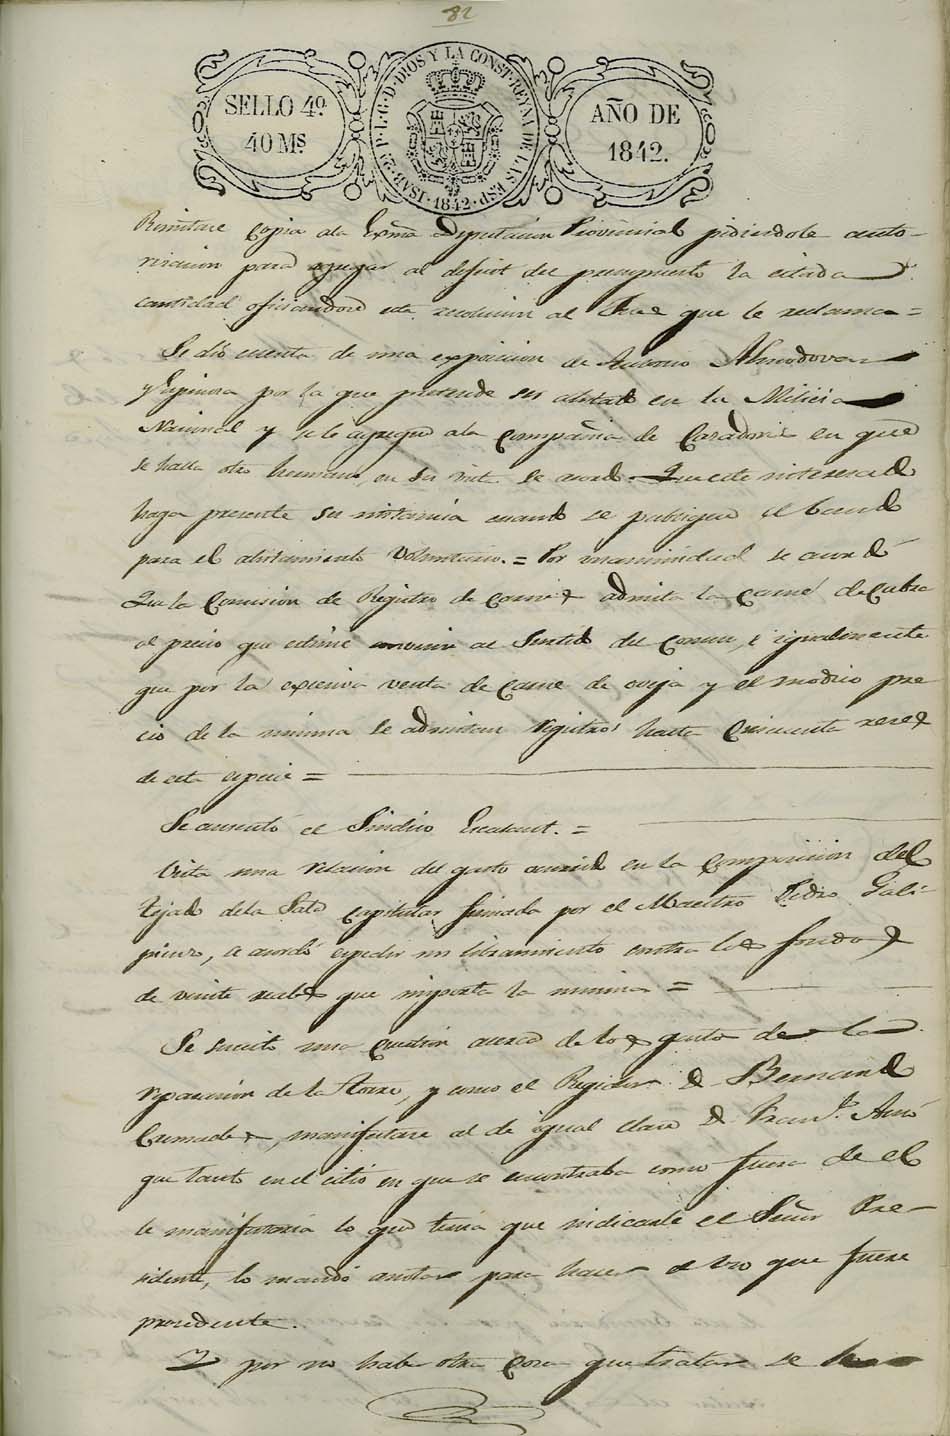 82
SELLO 4º.
40 Ms
ISAB. 2ª P. L. G. D. DIOS Y LA CONST. REYNA DE LAS ESP. 1842
AÑO DE
1842.
Remitase copia ala Exma Diputacion Provincial pidiendole auto-
rizacion para agregar al deficit del presupuesto la citada
cantidad oficiandose esta resolucion al Juez que le reclama =
Se dió cuenta de una exposicion de Antonio Almodovar
y Espinosa por la que pretende ser alistado en la Milicia
Nacional y se le agregue ala compañia de Cazadores en que
se halla otro hermano, en su vista se acordó Que este interesado
haga presente su instancia cuando se publique el bando
para el alistamiento voluntario. = Por unanimidad se acordó
Que la Comision de Registro de carnes admita la carne de Cabra
al precio que estime convenir al Surtido del Comun, é igualmente
que por la excesiva venta de carne de oveja y el modico pre
cio de la misma se admitan registros hasta Cincuenta reses
de esta especie =
Se ausentó el Sindico Escalant. =
Vista una relacion del gasto ocurrido en la composicion del
tejado dela Sala capitular firmada por el Maestro Pedro Gali
piens, se acordó espedir un libramiento contra los fondos
de veinte reales que importa la misma =
Se suscitó una cuestion acerca de los gastos de la
reparacion de la Torre, y como el Regidor D. Bernardo
Cremades, manifestase al de igual clase D. Franco. Amó
que tanto en el sitio en que se encontraba como fuera de el
le manifestaria lo que tenia que indicarle el Señor Pre-
sidente, lo mandó anotar para hacer el uso que fuere
procedente.
Y por no haber otra cosa que tratar se